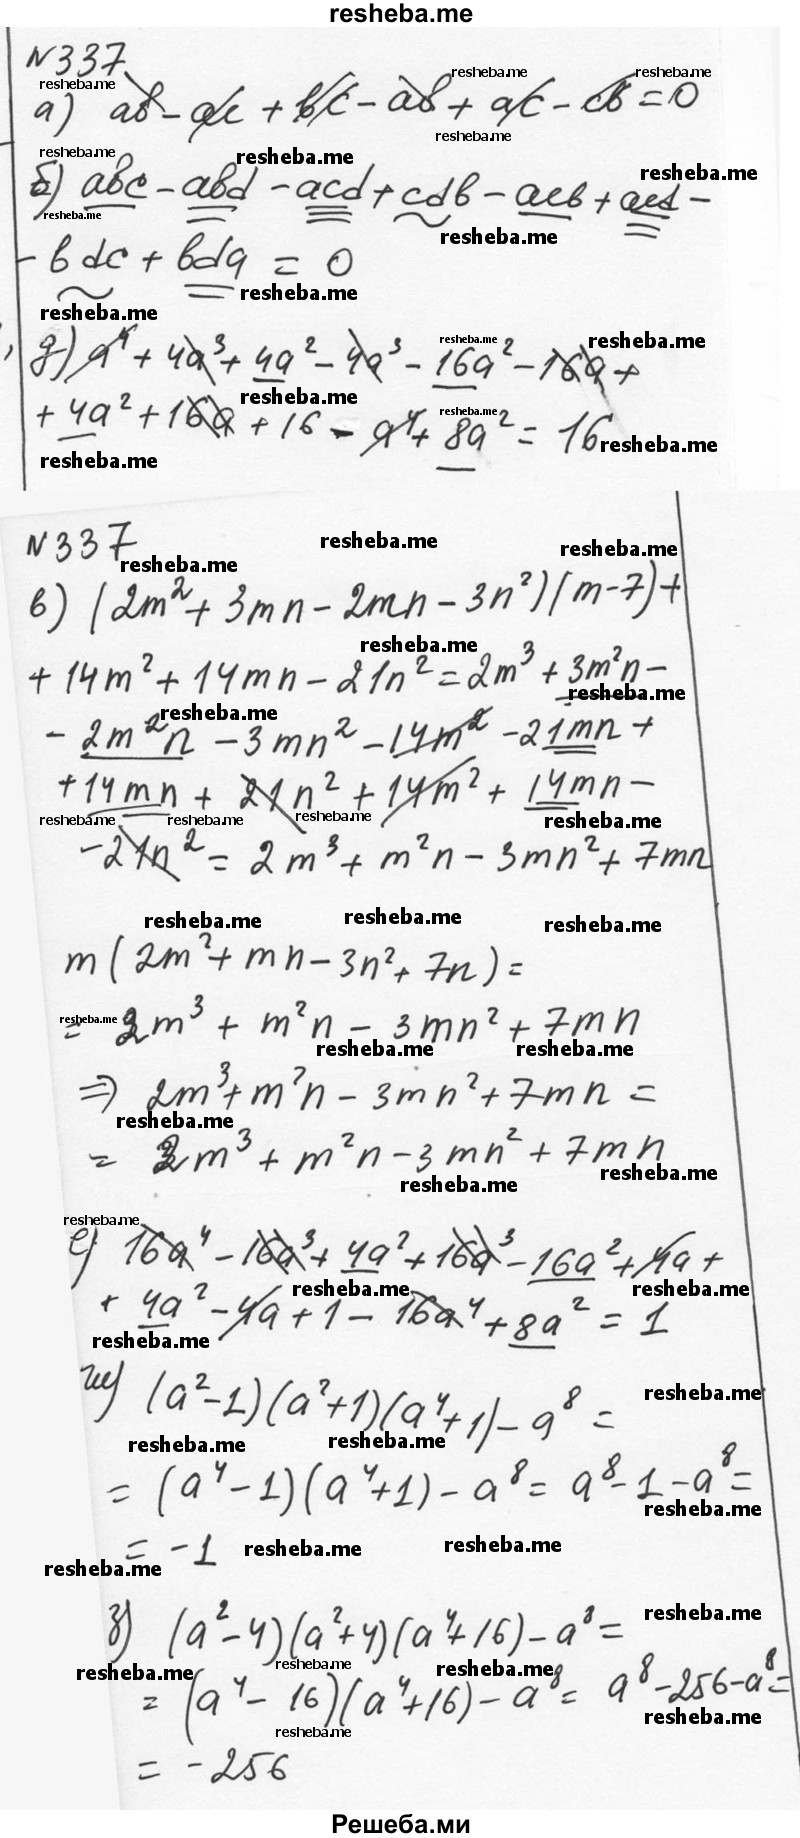 resheba.me
№337
а) ав - ас + вс - ав + ас - св = 0
б) авс - авd - acd + cdb - асв + acd -
- вdc + вda = 0
д) a⁴ + 4a³ + 4a² - 4a³ - 16a² - 16a +
+ 4a² + 16a + 16 - a⁴ + 8a² = 16
№337
в) (2m² + 3mn - 2mn - 3n²)(m - 7) +
+ 14m² + 14mn - 21n² = 2m³ + 3m²n -
- 2m²n - 3mn² - 14m² - 21mn +
+ 14mn + 21n² + 14m² + 14mn -
- 21n² = 2m³ + m²n - 3mn² + 7mn
m(2m² + mn - 3n² + 7n) =
= 2m³ + m²n - 3mn² + 7mn
⇒) 2m³ + m²n - 3mn² + 7mn =
= 2m³ + m²n - 3mn² + 7mn
е) 16a⁴ - 16a³ + 4a² + 16a³ - 16a² + 4a +
+ 4a² - 4a + 1 - 16a⁴ + 8a² = 1
ж) (a² - 1)(a² + 1)(a⁴ + 1) - a⁸ =
= (a⁴ - 1)(a⁴ + 1) - a⁸ = a⁸ - 1 - a⁸ =
= -1
з) (a² - 4)(a² + 4)(a⁴ + 16) - a⁸ =
= (a⁴ - 16)(a⁴ + 16) - a⁸ = a⁸ - 256 - a⁸ =
= -256
Решеба.ми